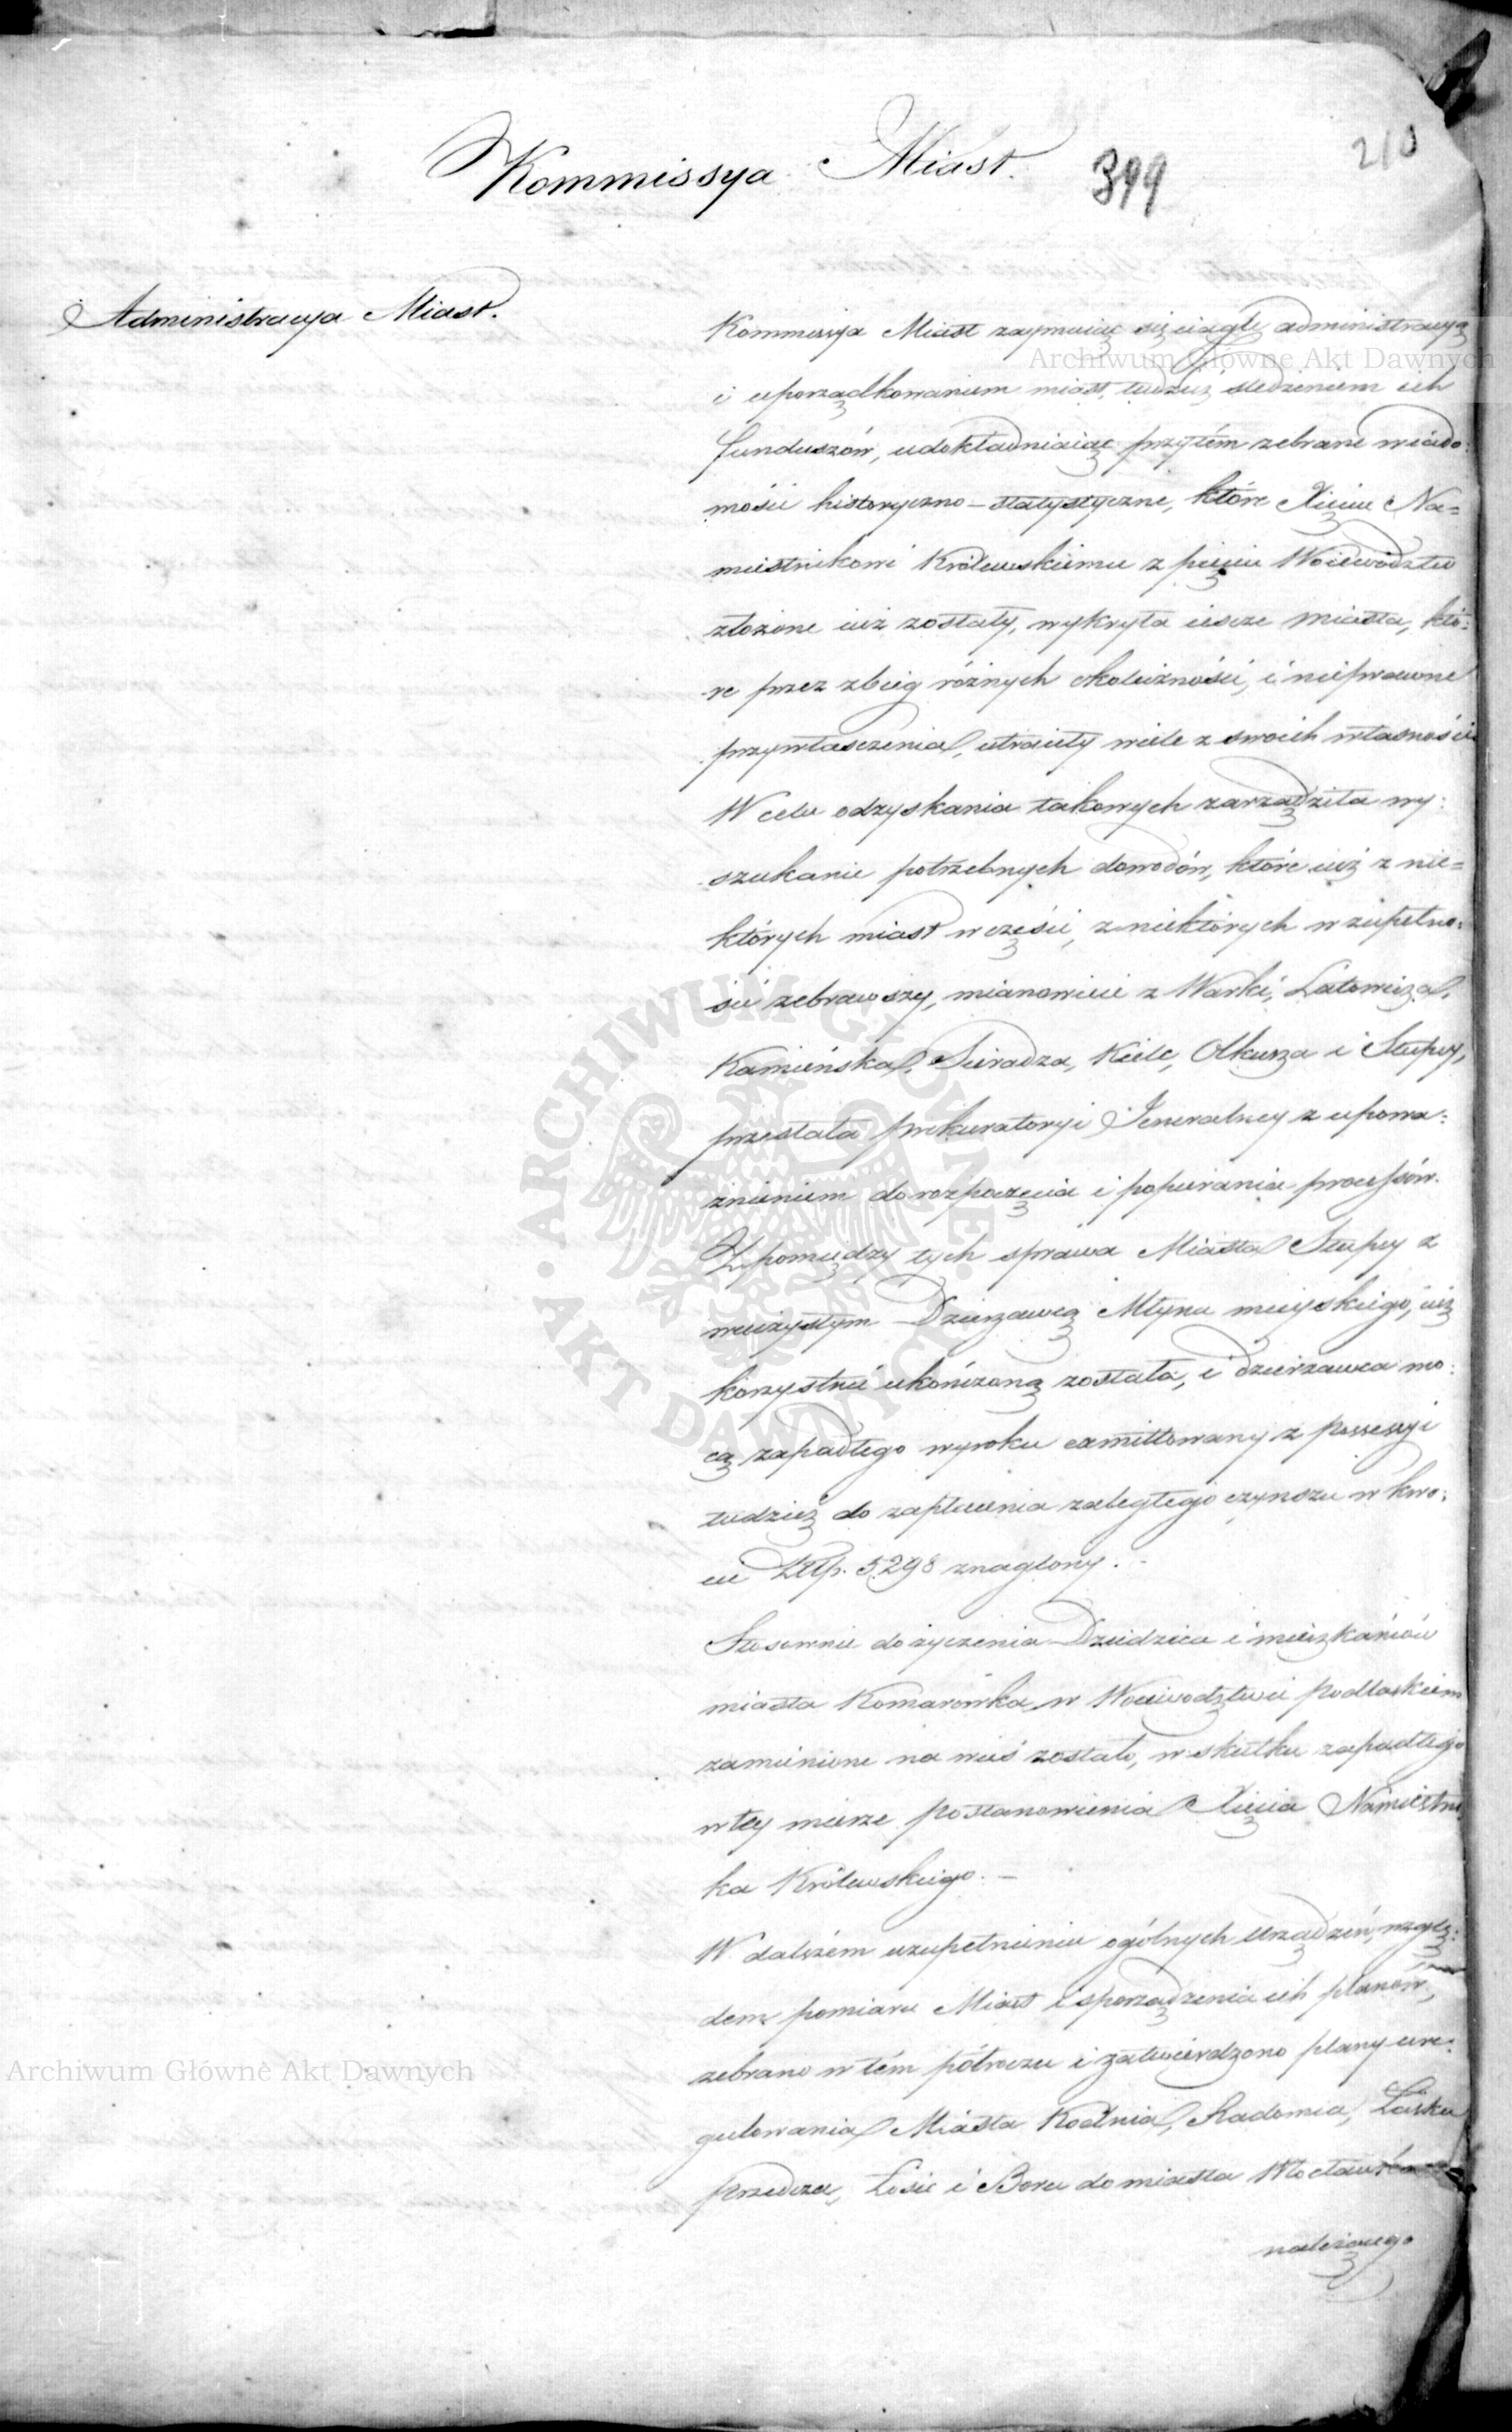 Kommissya Miast.
399
210
Administracya Miast.
Kommissya Miast zaymuiąc się ciągle administracyą
i uporządkowaniem miast, tudzież śledzeniem ich
funduszów, udokładniaiąc przytém zebrane wiado:
mości historyczno-statystyczne, które Xięciu Na=
miestnikowi Królewskiemu z pięciu Woiewództw
złożone iuż zostały, wykryła iescze miasta, któ:
re przez zbieg różnych okoliczności, i nieprawne
przywłasczenia, utraciły wiele z swoich własności
W celu odzyskania takowych zarządziła wy:
szukanie potrzebnych dowodów, które iuż z nie=
których miast w części, z niektórych w zupełno:
ści zebrawszy, mianowicie z Warki, Latowicza,
Kamieńska, Sieradza, Kielc, Olkusza i Słupcy,
przesłała prokuratoryi Jeneralney z upowa:
żnieniem do rozpoczęcia i popierania processów.
Z pomiędzy tych sprawa Miasta Słupcy z
wieczystym Dzierżawcą Młyna mieyskiego, iuż
korzystnie ukończoną została, i dzierżawca mo:
cą zapadłego wyroku exmittowany z possessyi
tudzież do zapłacenia zaległego czynszu w kwo:
cie Złłp. 5298 znaglony.
Stosownie do życzenia Dziedzica i mieszkańców
miasta Komarówka w Woiewództwie podlaskiem
zamienione na wieś zostało, w skutku zapadłego
w tey mierze postanowienia Xięcia Namiestni
ka Królewskiego.
W dalszem uzupełnieniu ogólnych urządzeń, wzglę:
dem pomiaru Miast i sporządzenia ich planów,
zebrano w tém półroczu i zatwierdzono plany ure:
gulowania Miasta Kodnia, Radomia, Łasku
Przedcza, Łosic i Boru do miasta Włocławka
należącego
Archiwum Główne Akt Dawnych
Archiwum Główne Akt Dawnych
ARCHIWUM GŁÓWNE AKT DAWNYCH